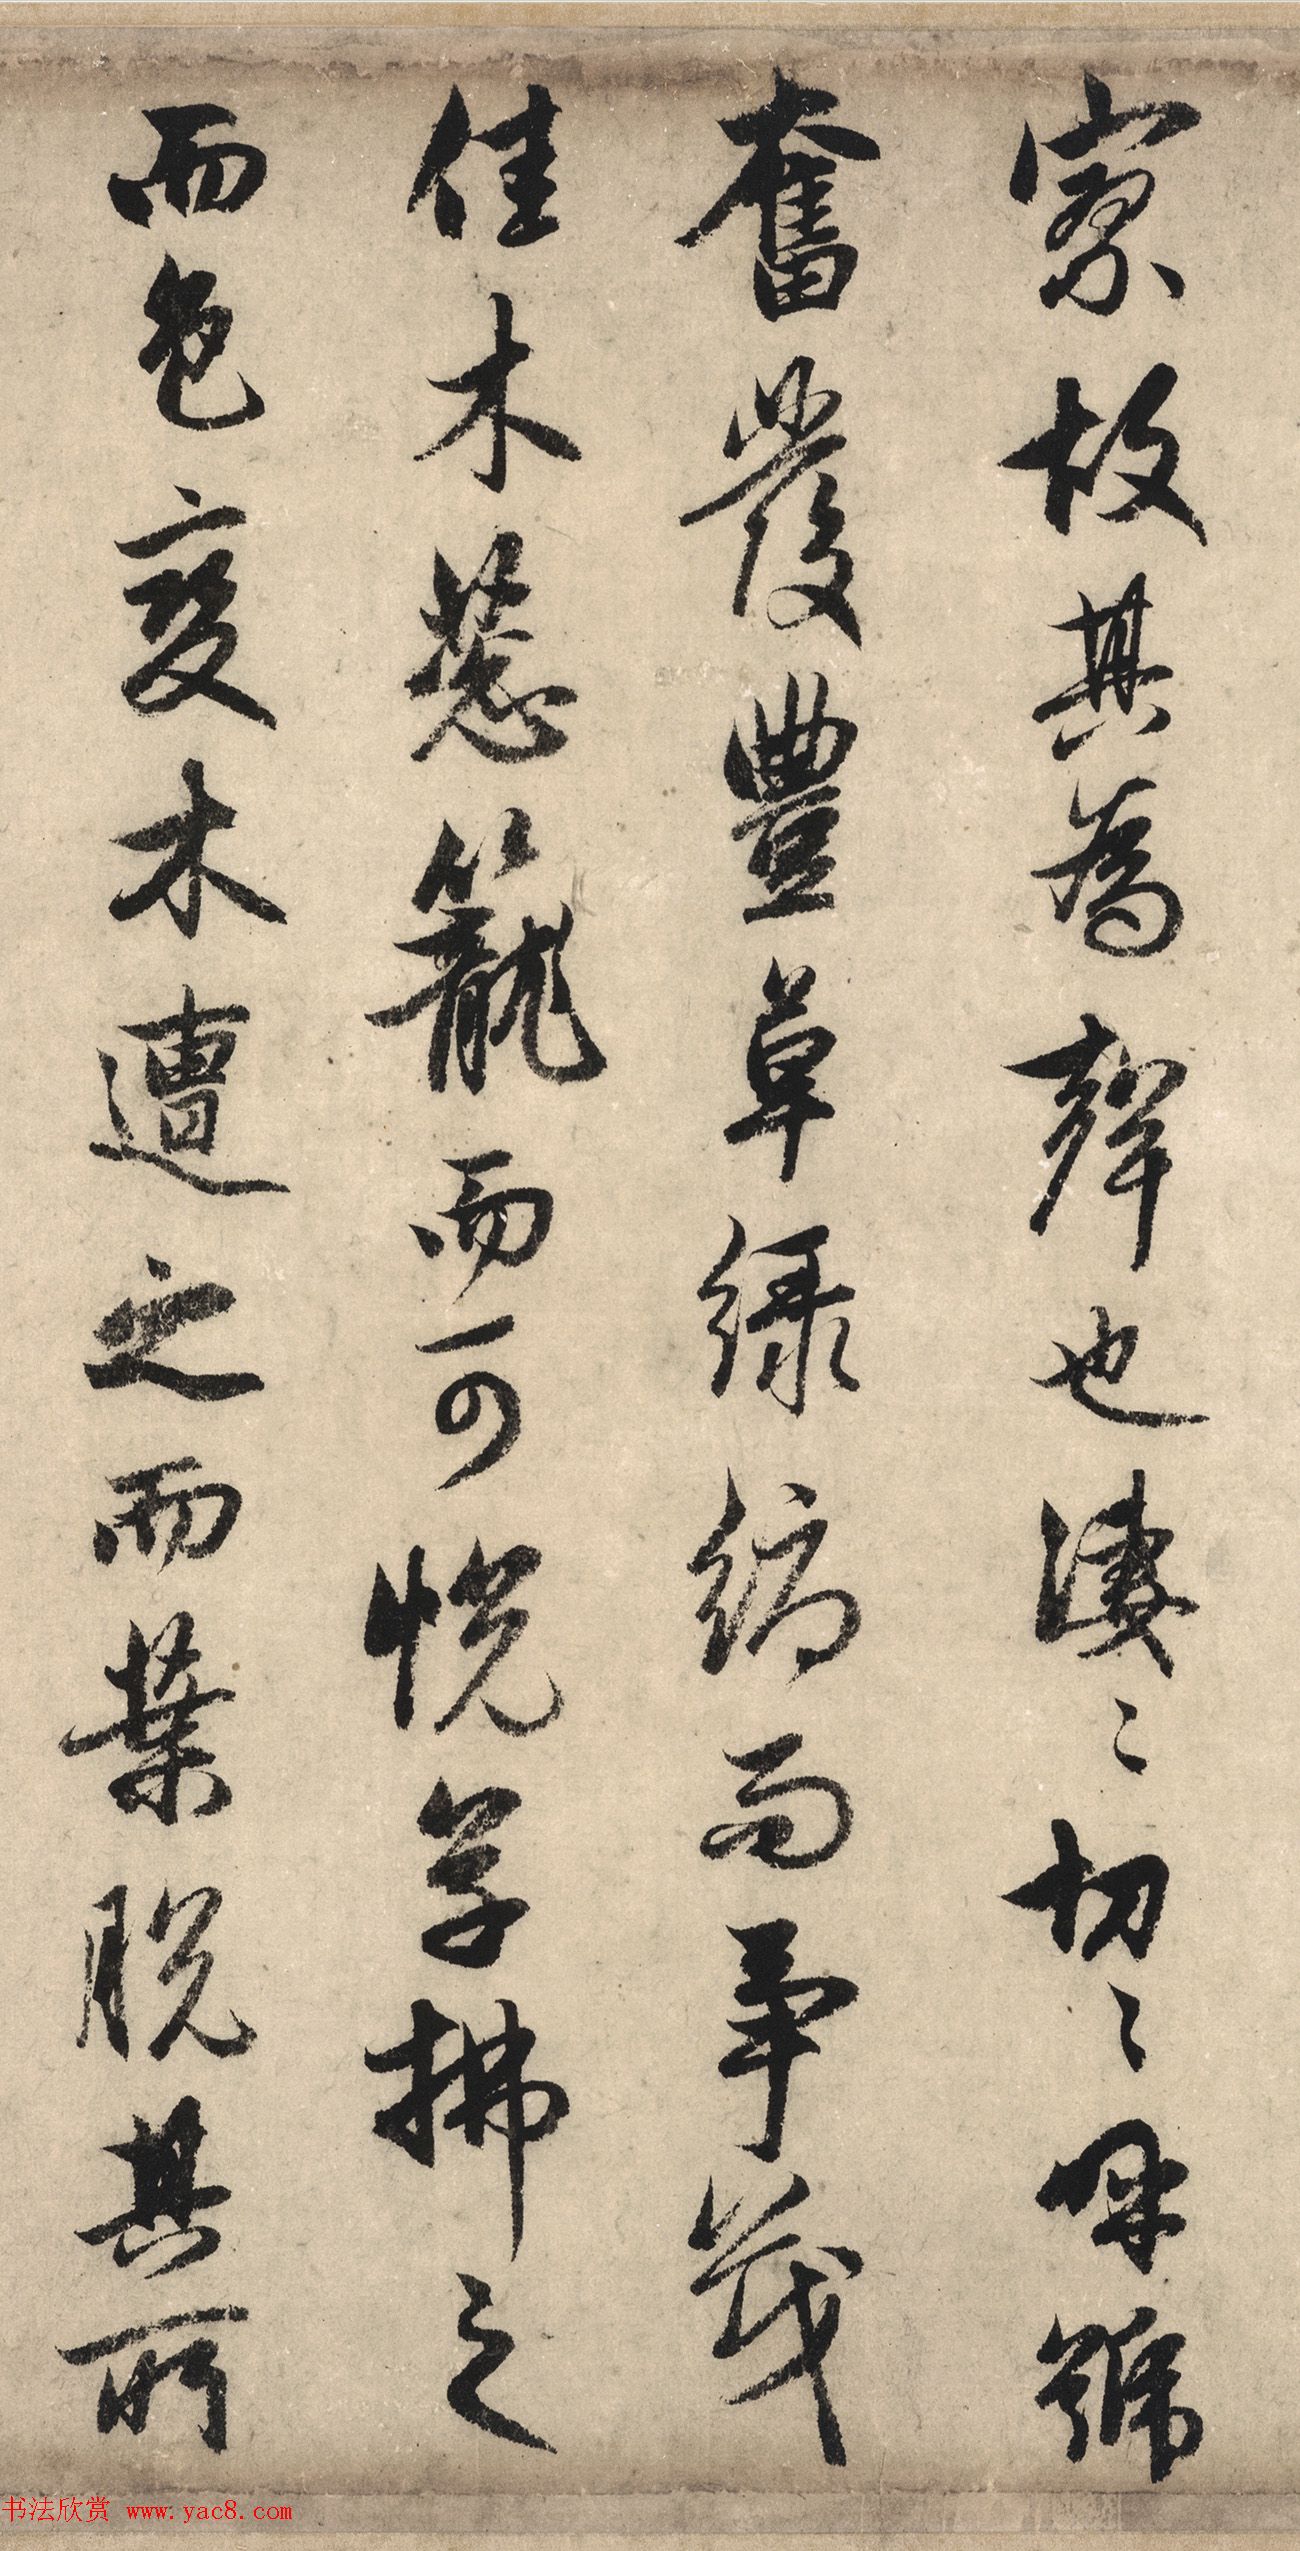 寥故其為聲也淒〻切〻呼號
奮發豐草綠縟而爭茂
佳木葱籠而可悅草拂之
而色變木遭之而葉脫其所
书法欣赏 www.yac8.com